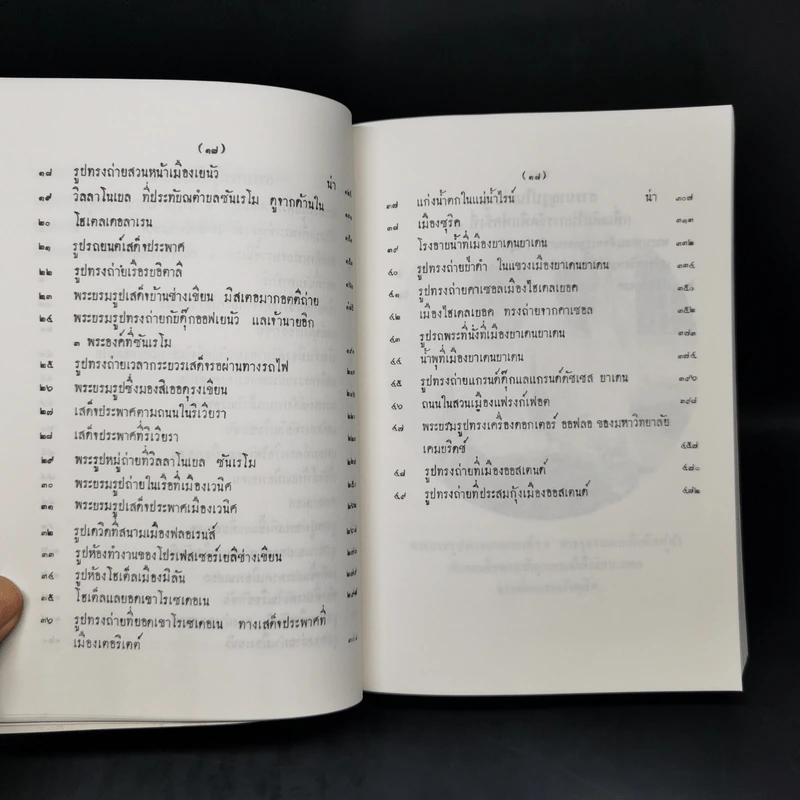 (๑๘)
น่า
๑๘ รูปทรงถ่ายสวนหน้าเมืองเยนัว
๑๙ วิลลาโนเบล ที่ประทัยณตำบลซันเรโม ดูจากด้านใน
๒๐ โฮเตลเดอลาเรน
๒๑ รูปรถยนต์เสด็จประพาศ
๒๒ รูปทรงถ่ายเรือรบอิตาลี
๒๓ พระบรมรูปเสด็จบ้านช่างเขียน มิสเตอมากอตตีถ่าย
๒๔ พระบรมรูปทรงถ่ายกับดุ๊กออฟเยนัว แลเจ้านายอีก
๓ พระองค์ที่ซันเรโม
๒๕ รูปทรงถ่ายเวลากระบวรเสด็จรอผ่านทางรถไฟ
๒๖ พระบรมรูปซึ่งมองสิเออดุรงเขียน
๒๗ เสด็จประพาศตามถนนในริเวียรา
๒๘ เสด็จประพาศที่ริเวียรา
๒๙ พระรูปหมู่ถ่ายที่วิลลาโนเบล ซันเรโม
๓๐ พระบรมรูปถ่ายในเรือที่เมืองเวนิศ
๓๑ พระบรมรูปเสด็จประพาศเมืองเวนิศ
๓๒ รูปเดวิดที่สนามเมืองฟลอเรนส์
๓๓ รูปห้องทำงานของโปรเฟสเซอร์เยลีช่างเขียน
๓๔ รูปห้องโฮเต็ลเมืองมิลัน
๓๕ โฮเต็ลแลยอดเขาโรเซเดอเน
๓๖ รูปทรงถ่ายที่ยอดเขาโรเซเดอเน ทางเสด็จประพาศที่
เมืองเตอริเตต์
(๑๙)
น่า
๓๗ แก่งน้ำตกในแม่น้ำไรน์ ๓๐๗
๓๘ เมืองซุริค ๓๑๓
๓๙ โรงอาบน้ำที่เมืองบาเดนบาเดน ๓๓๒
๔๐ รูปทรงถ่ายป่าดำ ในแขวงเมืองบาเดนบาเดน ๓๓๔
๔๑ รูปทรงถ่ายคาเซลเมืองไฮเดลเบอค ๓๕๐
๔๒ เมืองไฮเดลเบอค ทรงถ่ายจากคาเซล ๓๕๒
๔๓ รูปรถพระที่นั่งที่เมืองบาเดนบาเดน ๓๖๒
๔๔ น้ำพุที่เมืองบาเดนบาเดน ๓๗๔
๔๕ รูปทรงถ่ายแกรนด์ดุ๊กแลแกรนด์ดัชเชส บาเดน ๓๙๐
๔๖ ถนนในสวนเมืองแฟรงก์เฟอต ๓๙๘
๔๗ พระบรมรูปทรงเครื่องดอกเตอร์ ออฟลอ ของมหาวิทยาลัย
เคมบริดช์ ๔๕๗
๔๘ รูปทรงถ่ายที่เมืองออสเตนด์ ๔๗๐
๔๙ รูปทรงถ่ายที่ประสมกุ้งเมืองออสเตนด์ ๔๗๒